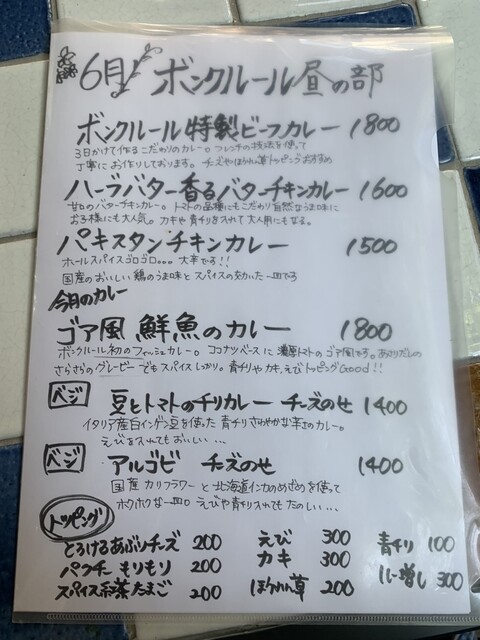 6月 ボンクルール 昼の部
ボンクルール 特製ビーフカレー 1800
3日かけて作るこだわりのカレー。フレンチの技法を使って
丁寧にお作りしております。チーズやほうれん草トッピングおすすめ
ハーブバター香るバターチキンカレー 1600
甘口のバターチキンカレー。トマトの品種にもこだわり自然なうま味に
お子様にも大人気。カキや青チリを入れて大人用にもなる。
パキスタンチキンカレー 1500
ホールスパイスゴロゴロ。。。大辛です!!
国産のおいしい鶏のうま味とスパイスの効いた一皿です
今月のカレー
ゴア風 鮮魚のカレー 1800
ボンクルール初のフィッシュカレー。ココナツベースに濃厚トマトのゴア風です。あさりだしの
さらさらのグレービーでもスパイスしっかり。青チリやカキ、えびトッピングGood!!
ベジ 豆とトマトのチリカレー チーズのせ 1400
イタリア産白インゲン豆を使った青チリさわやかな辛さのカレー。
えびを入れてもおいしい...
ベジ アルゴビ チーズのせ 1400
国産カリフラワーと北海道インカのめざめを使って
ホクホクな一皿。えびや青チリ入れてもたのしい...
トッピング
とろけるあぶりチーズ 200 えび 300 青チリ 100
パクチーもりもり 200 カキ 300 ルー増し 300
スパイス紅茶たまご 200 ほうれん草 200